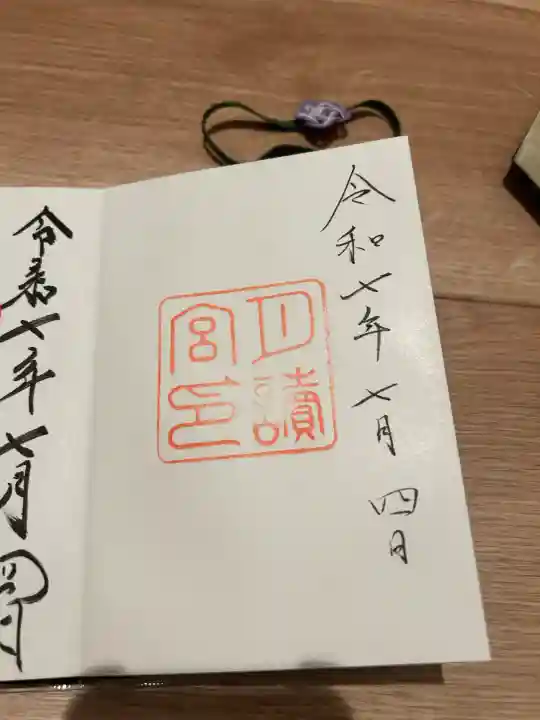 令和七年七月四日
月讀
宮印
令和七年七月四日